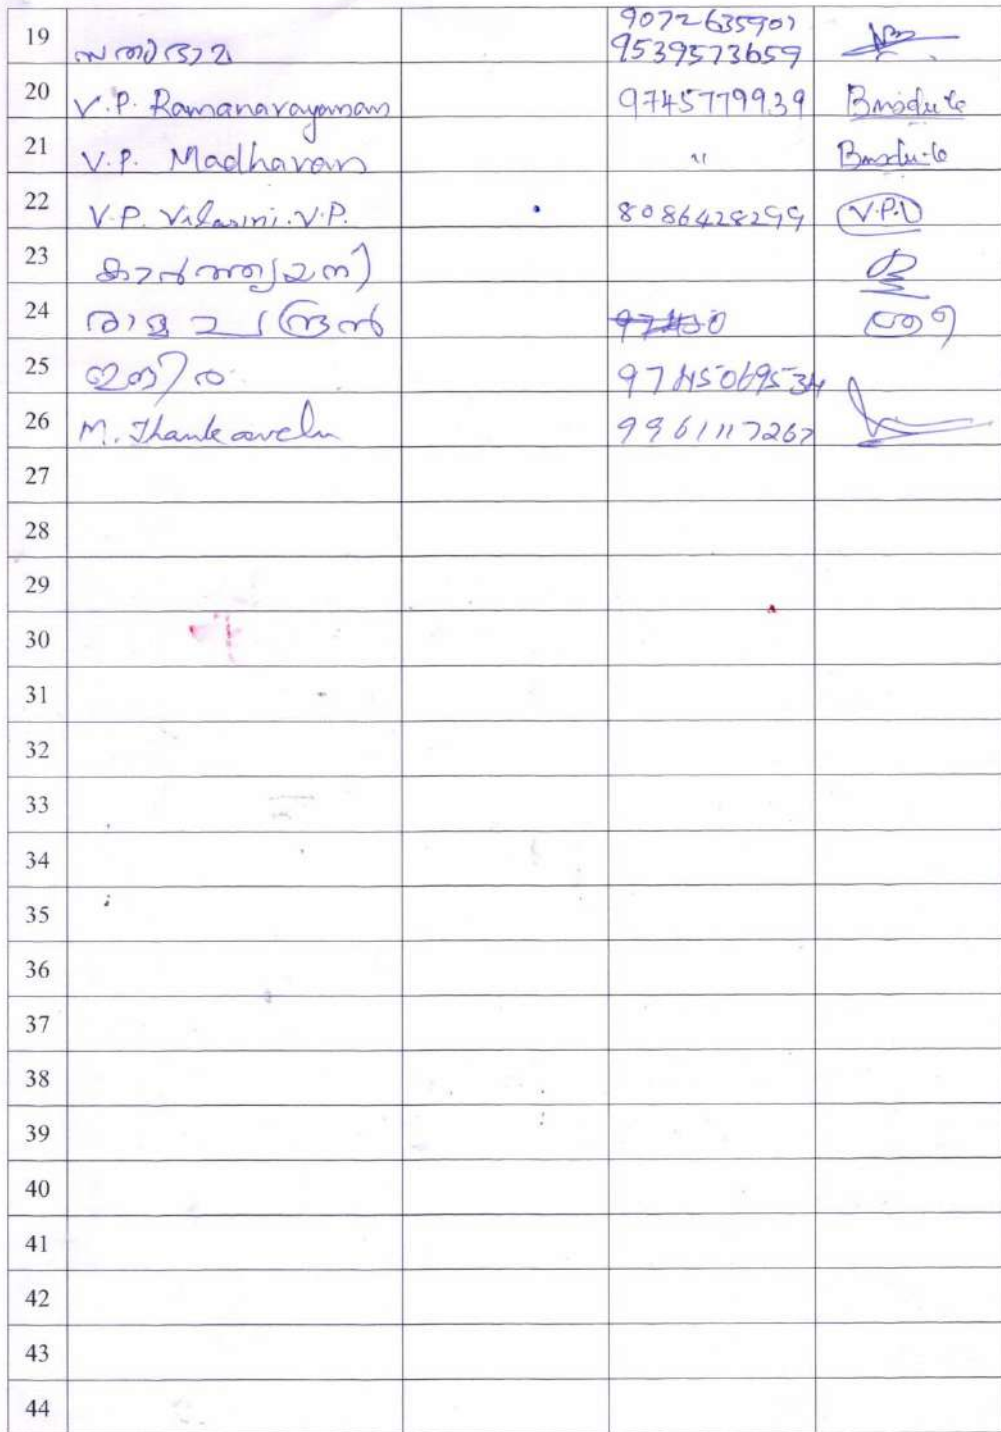 19 സത്യഭാമ 9072635901
9539573659
20 V.P. Ramanarayanan 9745779939
21 V.P. Madhavan "
22 V.P. Vilasini. V.P. 8086428299 V.P.V
23 കാർത്ത്യായനി
24 രാമചന്ദ്രൻ
25 ഇന്ദിര 9745069534
26 M. Thankavelu 9961117267
27
28
29
30
31
32
33
34
35
36
37
38
39
40
41
42
43
44